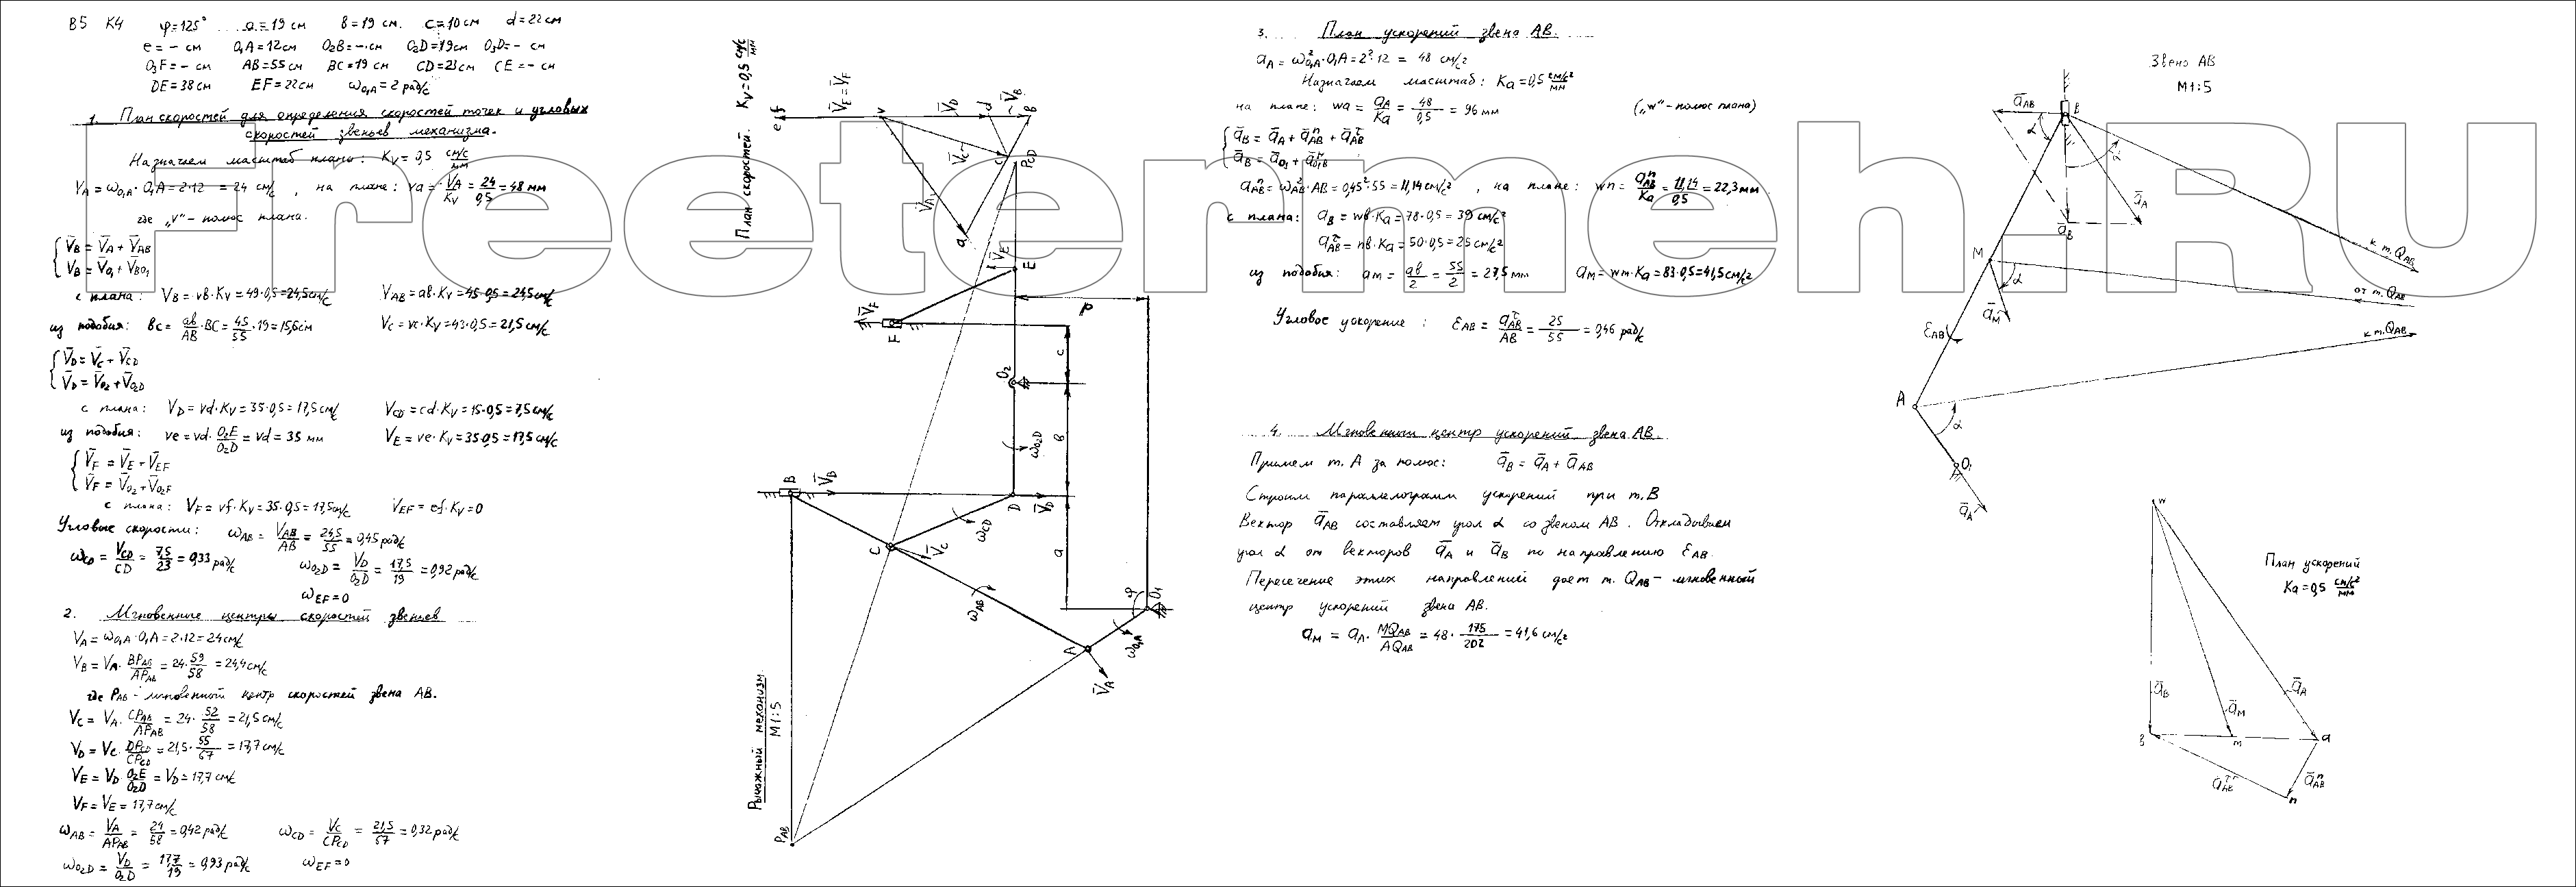 B5 K4 φ=125° a=19 см в=19 см. c=10 см d=22 см
e= – см O₁A=12 см O₂B= – см O₂D=19 см O₃D= – см
O₃F= – см AB=55 см BC=19 см CD=23 см CE= – см
DE=38 см EF=22 см ω_O₁A=2 рад/с
1. План скоростей для определения скоростей точек и угловых
скоростей звеньев механизма.
Назначаем масштаб плана: K_V=0,5 см/с/мм
V_A=ω_O₁A·O₁A=2·12=24 см/с, на плане: va=V_A/K_V=24/0,5=48 мм
где „v" – полюс плана.
V̄_B=V̄_A+V̄_AB
V̄_B=V̄_O₁+V̄_BO₁
с плана: V_B=vв·K_V=49·0,5=24,5 см/с V_AB=aв·K_V=45·0,5=24,5 см/с
из подобия: вc=aв/AB·BC=45/55·19=15,6 см V_C=vc·K_V=43·0,5=21,5 см/с
V̄_D=V̄_C+V̄_CD
V̄_D=V̄_O₂+V̄_O₂D
с плана: V_D=vd·K_V=35·0,5=17,5 см/с V_CD=cd·K_V=15·0,5=7,5 см/с
из подобия: ve=vd·O₂E/O₂D=vd=35 мм V_E=ve·K_V=35·0,5=17,5 см/с
V̄_F=V̄_E+V̄_EF
V̄_F=V̄_O₂+V̄_O₂F
с плана: V_F=vf·K_V=35·0,5=17,5 см/с V_EF=ef·K_V=0
Угловые скорости: ω_AB=V_AB/AB=24,5/55=0,45 рад/с
ω_CD=V_CD/CD=7,5/23=0,33 рад/с ω_O₂D=V_D/O₂D=17,5/19=0,92 рад/с
ω_EF=0
2. Мгновенные центры скоростей звеньев
V_A=ω_O₁A·O₁A=2·12=24 см/с
V_B=V_A·BP_AB/AP_AB=24·59/58=24,4 см/с
где P_AB – мгновенный центр скоростей звена AB.
V_C=V_A·CP_AB/AP_AB=24·52/58=21,5 см/с
V_D=V_C·DP_CD/CP_CD=21,5·55/67=17,7 см/с
V_E=V_D·O₂E/O₂D=V_D=17,7 см/с
V_F=V_E=17,7 см/с
ω_AB=V_A/AP_AB=24/58=0,42 рад/с ω_CD=V_C/CP_CD=21,5/67=0,32 рад/с
ω_O₂D=V_D/O₂D=17,7/19=0,93 рад/с ω_EF=0
План скоростей. K_V=0,5 см/с/мм
e f V̄_E=V̄_F v V̄_D d V̄_B в
V̄_C c P_CD
V̄_A a
V̄_E E
V̄_F F
P
O₂ c
ω_O₂D в
B V̄_B D V̄_D
ω_CD
C V̄_C a
ω_AB φ O₁
A ω_O₁A
V̄_A
Рычажный механизм
M1:5
P_AB
3. План ускорений звена AB.
a_A=ω²_O₁A·O₁A=2²·12=48 см/с²
Назначаем масштаб: K_a=0,5 см/с²/мм
на плане: wa=a_A/K_a=48/0,5=96 мм („w"-полюс плана)
ā_B=ā_A+ā^n_AB+ā^τ_AB
ā_B=ā_O₁+ā^n_O₁B
a^n_AB=ω²_AB·AB=0,45²·55=11,14 см/с², на плане: wn=a^n_AB/K_a=11,14/0,5=22,3 мм
с плана: a_B=wв·K_a=78·0,5=39 см/с²
a^τ_AB=nв·K_a=50·0,5=25 см/с²
из подобия: am=aв/2=55/2=27,5 мм a_M=wm·K_a=83·0,5=41,5 см/с²
Угловое ускорение: ε_AB=a^τ_AB/AB=25/55=0,46 рад/с
4. Мгновенный центр ускорений звена AB.
Примем т. A за полюс: ā_B=ā_A+ā_AB
Строим параллелограмм ускорений при т. B
Вектор ā_AB составляет угол α со звеном AB. Откладываем
угол α от векторов ā_A и ā_B по направлению ε_AB.
Пересечение этих направлений дает т. Q_AB – мгновенный
центр ускорений звена AB.
a_M=a_A·MQ_AB/AQ_AB=48·175/202=41,6 см/с²
Звено AB
M1:5
ā_AB B
α α
ā_A
ā_B
M к т. Q_AB
α от т. Q_AB
ā_M
ε_AB к т. Q_AB
A
α
O₁
ā_A
w
План ускорений
K_a=0,5 см/с²/мм
ā_B ā_A
ā_M
в m a
ā^τ_AB ā^n_AB
n
Freetermeh.RU